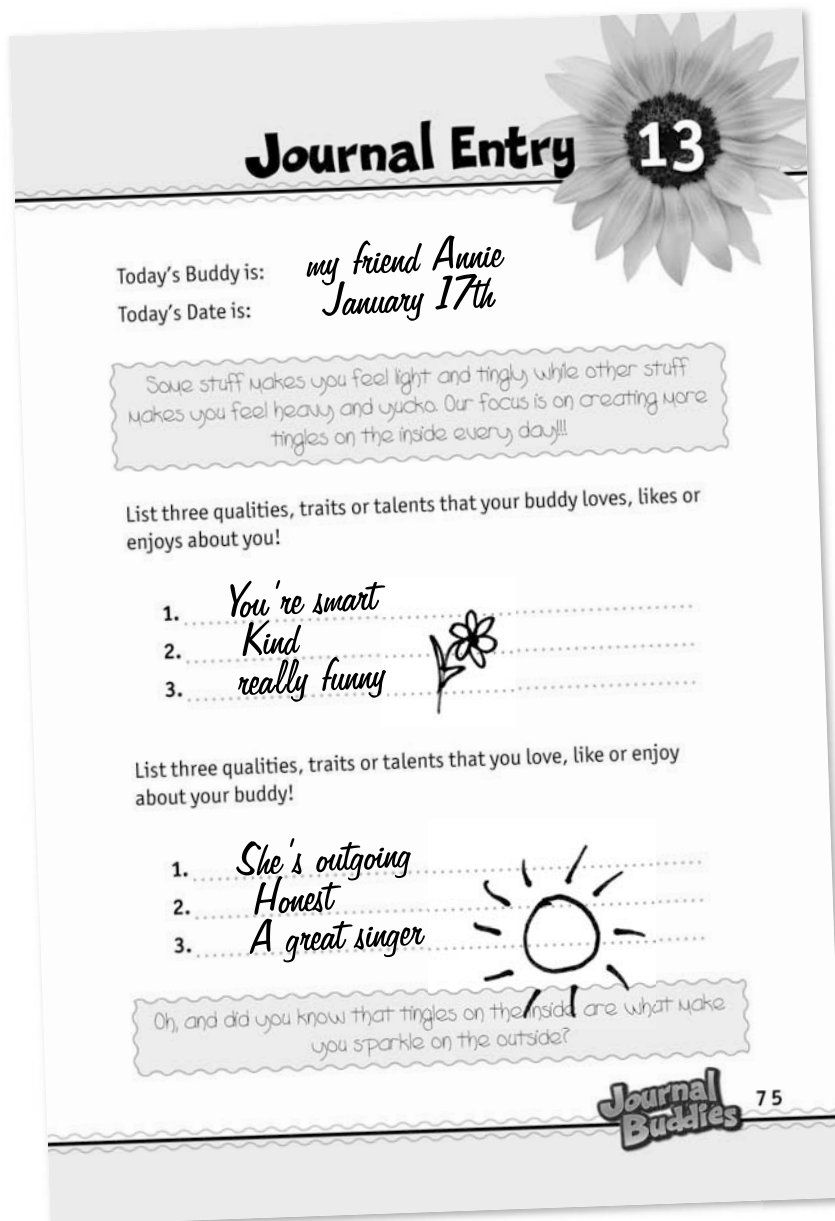 Journal Entry 13
Today's Buddy is: my friend Annie
Today's Date is: January 17th
Some stuff makes you feel light and tingly while other stuff
makes you feel heavy and yucko. Our focus is on creating more
tingles on the inside every day!!!
List three qualities, traits or talents that your buddy loves, likes or
enjoys about you!
1. You're smart
2. Kind
3. really funny
List three qualities, traits or talents that you love, like or enjoy
about your buddy!
1. She's outgoing
2. Honest
3. A great singer
Oh, and did you know that tingles on the inside are what make
you sparkle on the outside?
Journal
Buddies
75